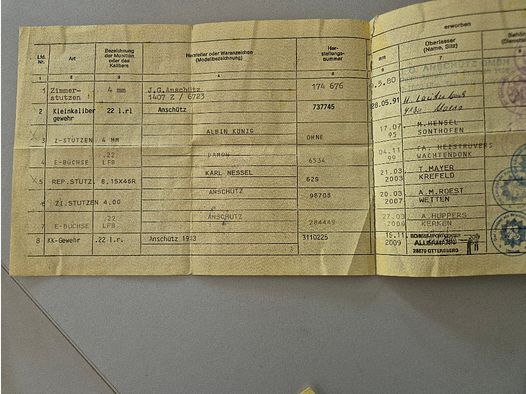 erworben
Lfd. Nr. Art Bezeichnung der Munition oder des Kalibers Hersteller oder Warenzeichen (Modellbezeichnung) Herstellungsnummer am Überlasser (Name, Sitz)
1 2 3 4 5 6 7
1 Zimmerstutzen 4 mm J.G.Anschütz 1407 Z / 6723 174 676
2 Kleinkaliber gewehr 22 l.rl Anschütz 737745 28.05.91
3 Z-STUTZEN 4 MM ALBIN KÖNIG OHNE 17.07. 95 M.HENSEL SONTHOFEN
4 E-BÜCHSE .22 LFB DAMON 6534 04.11. 99 FA. HEISTRÜVERS WACHTENDONK
5 REP.STUTZ. 8,15X46R KARL NESSEL 629 21.03. 2003 T.MAYER KREFELD
6 ZI.STUTZEN 4,00 ANSCHÜTZ 98703 20.03. 2007 A.M.ROEST WETTEN
7 E-BÜCHSE 22 LFB ANSCHÜTZ 284449 27.03 2009 A.HÜPPERS KERKEN
8 KK-Gewehr .22 l.r. Anschütz 1913 3110225 2009 ALLERMANN
28870 OTTERSBERG